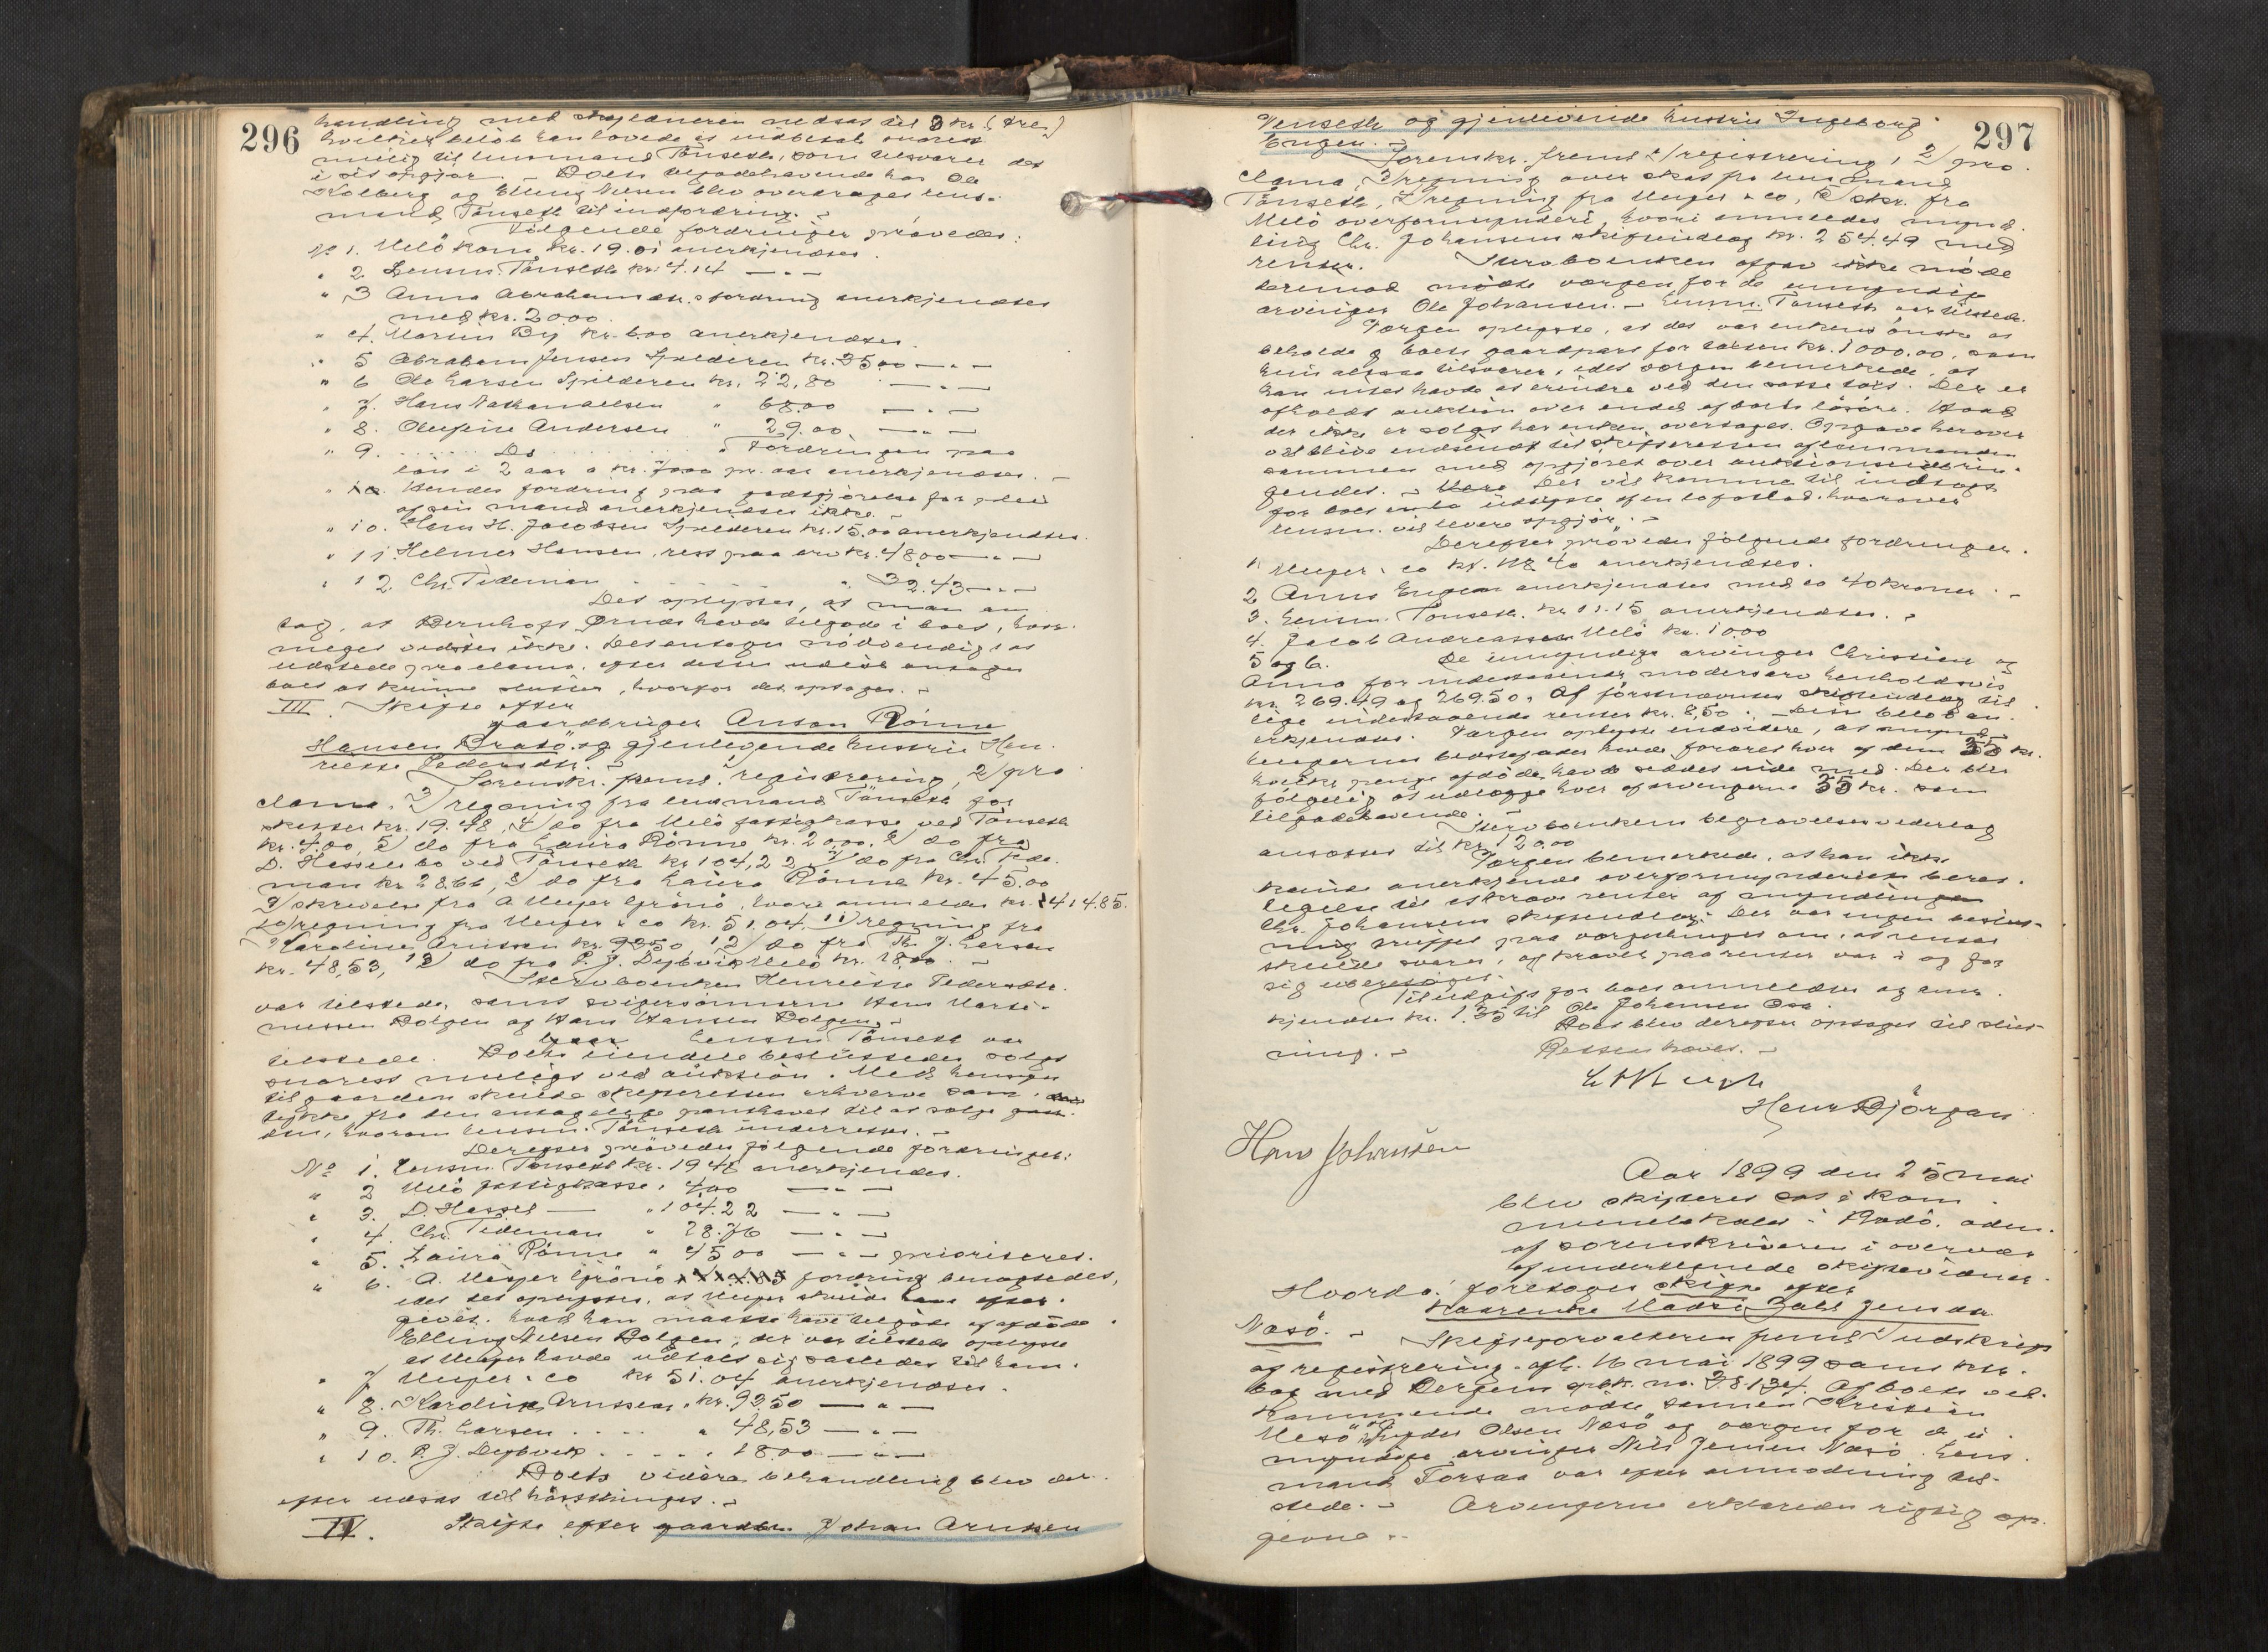 296
handling med nedsat til 3 kr. (tre)
hvilket beløb han lovede at indbetale snarest
mulig til lensmand Tönseth, som tilsvarer det
i sit opgjør. - Boets tilgodehavende hos Ole
Kolberg og Elling blev overdraget lens-
mand Tönseth til indfordring. -
Følgende fordringer prövedes:
No 1. Melö kom. kr. 19.01 anerkjendtes.
" 2. Lensm. Tönseth kr. 4.14 — " —
" 3 Anna Abrahamsdtr.s fordring anerkjendtes
med kr. 20.00.
" 4. Martin kr. 6.00 anerkjendtes.
" 5 Abraham Jensen Spilderen kr. 35.00 — " —
" 6 Ole Larsen Spilderen kr. 22,80 — " —
" 7. Hans Nathanaelsen " 68.00 — " —
" 8. Olufine Andersen " 29.00 — " —
" 9. Do Fordringen paa
lön i 2 aar a kr. pr. aar anerkjendtes. -
" 10. Hendes fordring paa godtgjörelse for pleie
af sin mand anerkjendtes ikke. -
" 10. Hans H. Jacobsen Spilderen kr. 15.00 anerkjendtes.
" 11. Helmer Hansen, rest paa arv kr. 48,00 — " —
" 12. Chr. Tideman " 32.43 — " —
Det oplystes, at man an-
tog, at havde tilgode i boet, hvor
meget vidstes ikke. Det ansages nödvendigt at
udstede proclama. efter dettes udløb ansages
boet at kunne sluttes, hvorfor det optages. -
III. Skifte efter
gaardbruger Anton Rönne
Hansen og gjenlevende hustru Hen-
riette Pedersdtr. -
Sorenskr. freml. registrering, 2) pro
clama. 3) regning fra lensmand Tönseth for
skatter kr. 19.48, 4) do fra Melö fattigkasse ved Tönseth
kr. 4.00, 5) do fra Laura Rönne kr. 20.00, 6) do fra
D. Hessel bo ved Tönseth kr 104,22, 7) do fra Chr. Tide-
man kr 28.66, 8) do fra Laura Rönne kr. 45.00
9) skrivelse fra A Meyer Grönö, hvori anmeldes kr. 1414.85.
10) regning fra Meyer & co kr. 51.04. 11) regning fra
Karoline Arntsen kr. 9350, 12) do fra Th. J. Larsen
kr. 48,53, 13) do fra P. J. Dybvik Melö kr. 18,00. -
Stervboenken Henriette Pedersdtr.
var tilstede, samt svigersönnerne Hans Marti-
nussen Bolgen og Hans Hansen Bolgen. -
Lensm Tönseth var
tilstede. Boets eiendele besluttedes solgt
snarest muligt ved auktion. Med hensyn
til gaarden skulde skifteretten erhverve sam-
tykke fra den antagelige panthaver til at sælge gaar-
den, hvorom lensm. Tönseth underrettes. -
Derefter prövedes fölgende fordringer:
No 1. Lensm. Tönseth kr. 19.48 anerkjendes.
" 2 Melö fattigkasse, 4,00 — " —
" 3. D. Hessel — " 104.22 — " —
" 4. Chr. Tideman " 28.76 — " —
" 5. Laura Rönne " 45 00 — " — prioriteres.
" 6. A. Meyer Grönö fordring benegtedes,
idet det oplystes, at Meyer skulde have efter-
givet, hvad han maatte have tilgode af afdöde.
Elling Nilsen Bolgen, der var tilstede oplyste
at Meyer havde udtalt sig saaledes til ham.
" 7 Meyer & co kr 51.04 anerkjendtes.
" 8. Karoline Arntsen " kr. 93.50 — " —
" 9. Th. Larsen " 48,53 — " —
" 10. P. J. Dybvik " 18.00 — " —
Boets videre behandling blev der-
efter udsat til
IV. Skifte efter gaardbr. Johan Arntsen
297
Tenseth og gjenlevende hustru Ingeborg
Engen. -
Sorenskr. freml 1) registrering, 2) pro
clama, 3) regning over skat fra lensmand
Tönseth, 4) regning fra Meyer & co, 5) skr. fra
Melö overformynderi, hvori anmeldes mynd-
ling Chr. Johansens skifteudlæg kr. 254.49 med
renter. Stervboenken afgav ikke möde
derimod mödte værgen for de umyndige
arvinger Ole Johansen. - Lensm. Tönseth var tilstede.
Værgen oplyste, at det var enkens önske at
beholde boets gaardpart for taksten kr. 1000.00, som
hun altsaa tilsvarer, idet værgen bemerkede, at
han intet havde at erindre ved den satte takst. Der er
afholdt auktion over endel af boets lösöre. Hvad
der ikke er solgt har enken overtaget. Opgave herover
vil blive indsendt til skifteretten af lensmanden
sammen med opgjöret over auktionsindbrin-
gendet. - Der vil komme til indtægt
for boet
lensm. vil levere opgjör. -
Derefter prövedes fölgende fordringer.
1. Meyer & co kr. anerkjendtes.
2 Anne Engen anerkjendtes med 40 kroner. -
3. Lensm. Tönseth. kr 11.15 anerkjendtes. -
4. Jacob Andreassen Melö kr. 10.00
5 og 6. De umyndige arvinger Christian og
Anna for indestaaende mödrearv henholdsvis
kr. 269.49 og 269.50. Af förstnævntes skifteudlæg til-
lige indestaaende renter kr. 8,50. - Disse belöb an-
erkjendtes. Værgen oplyste endvidere, at mynd-
lingernes bedsteforældre havde foræret hver af dem 35 kr.
hvilke penge afdöde havde siddet inde med. Der blir
fölgelig at udlægge hver af arvingerne 35 kr. som
tilgodehavende.
Stervboenkens begravelsesvederlag
ansattes til kr. 120.00
Værgen bemerkede, at han ikke
kunde anerkjende overformynderiets beret-
tigelse til at kræve renter af myndlingen
Chr. Johansens skifteudlæg. Der var ingen bestem-
ning truffet paa om, at renter
skulde svares, og kravet paa renter var i og for
sig uberettiget.
Til udgift for boet anmeldtes og aner-
kjendtes kr. 1.35 til Ole Johansen
Boet blev derefter optaget til slut-
ning. -
Retten hævet. -
Henr Bjørgan
Hans Johansen
Aar 1899 den 25 mai
blev skifteret sat i kom-
munelokalet i Rödö. adm.
af sorenskriveren i overvær
af undertegnede skiftevidner.
Hvorda: foretoges skifte efter
Jensdtr
Næsö. -
Skifteforvalteren freml 1) udskrift
af registrering. afh. 16 mai 1899 samt kr.
bog med Bergens spbk. no. Af boets ved-
kommende mödte sönnen Kristian
Olsen Næsö og værgen for de u-
myndige arvinger Nils Jensen Næsö. Lens-
mand Forsaa var efter anmodning til-
stede. - Arvingerne erklæredes rigtig op-
givne. -